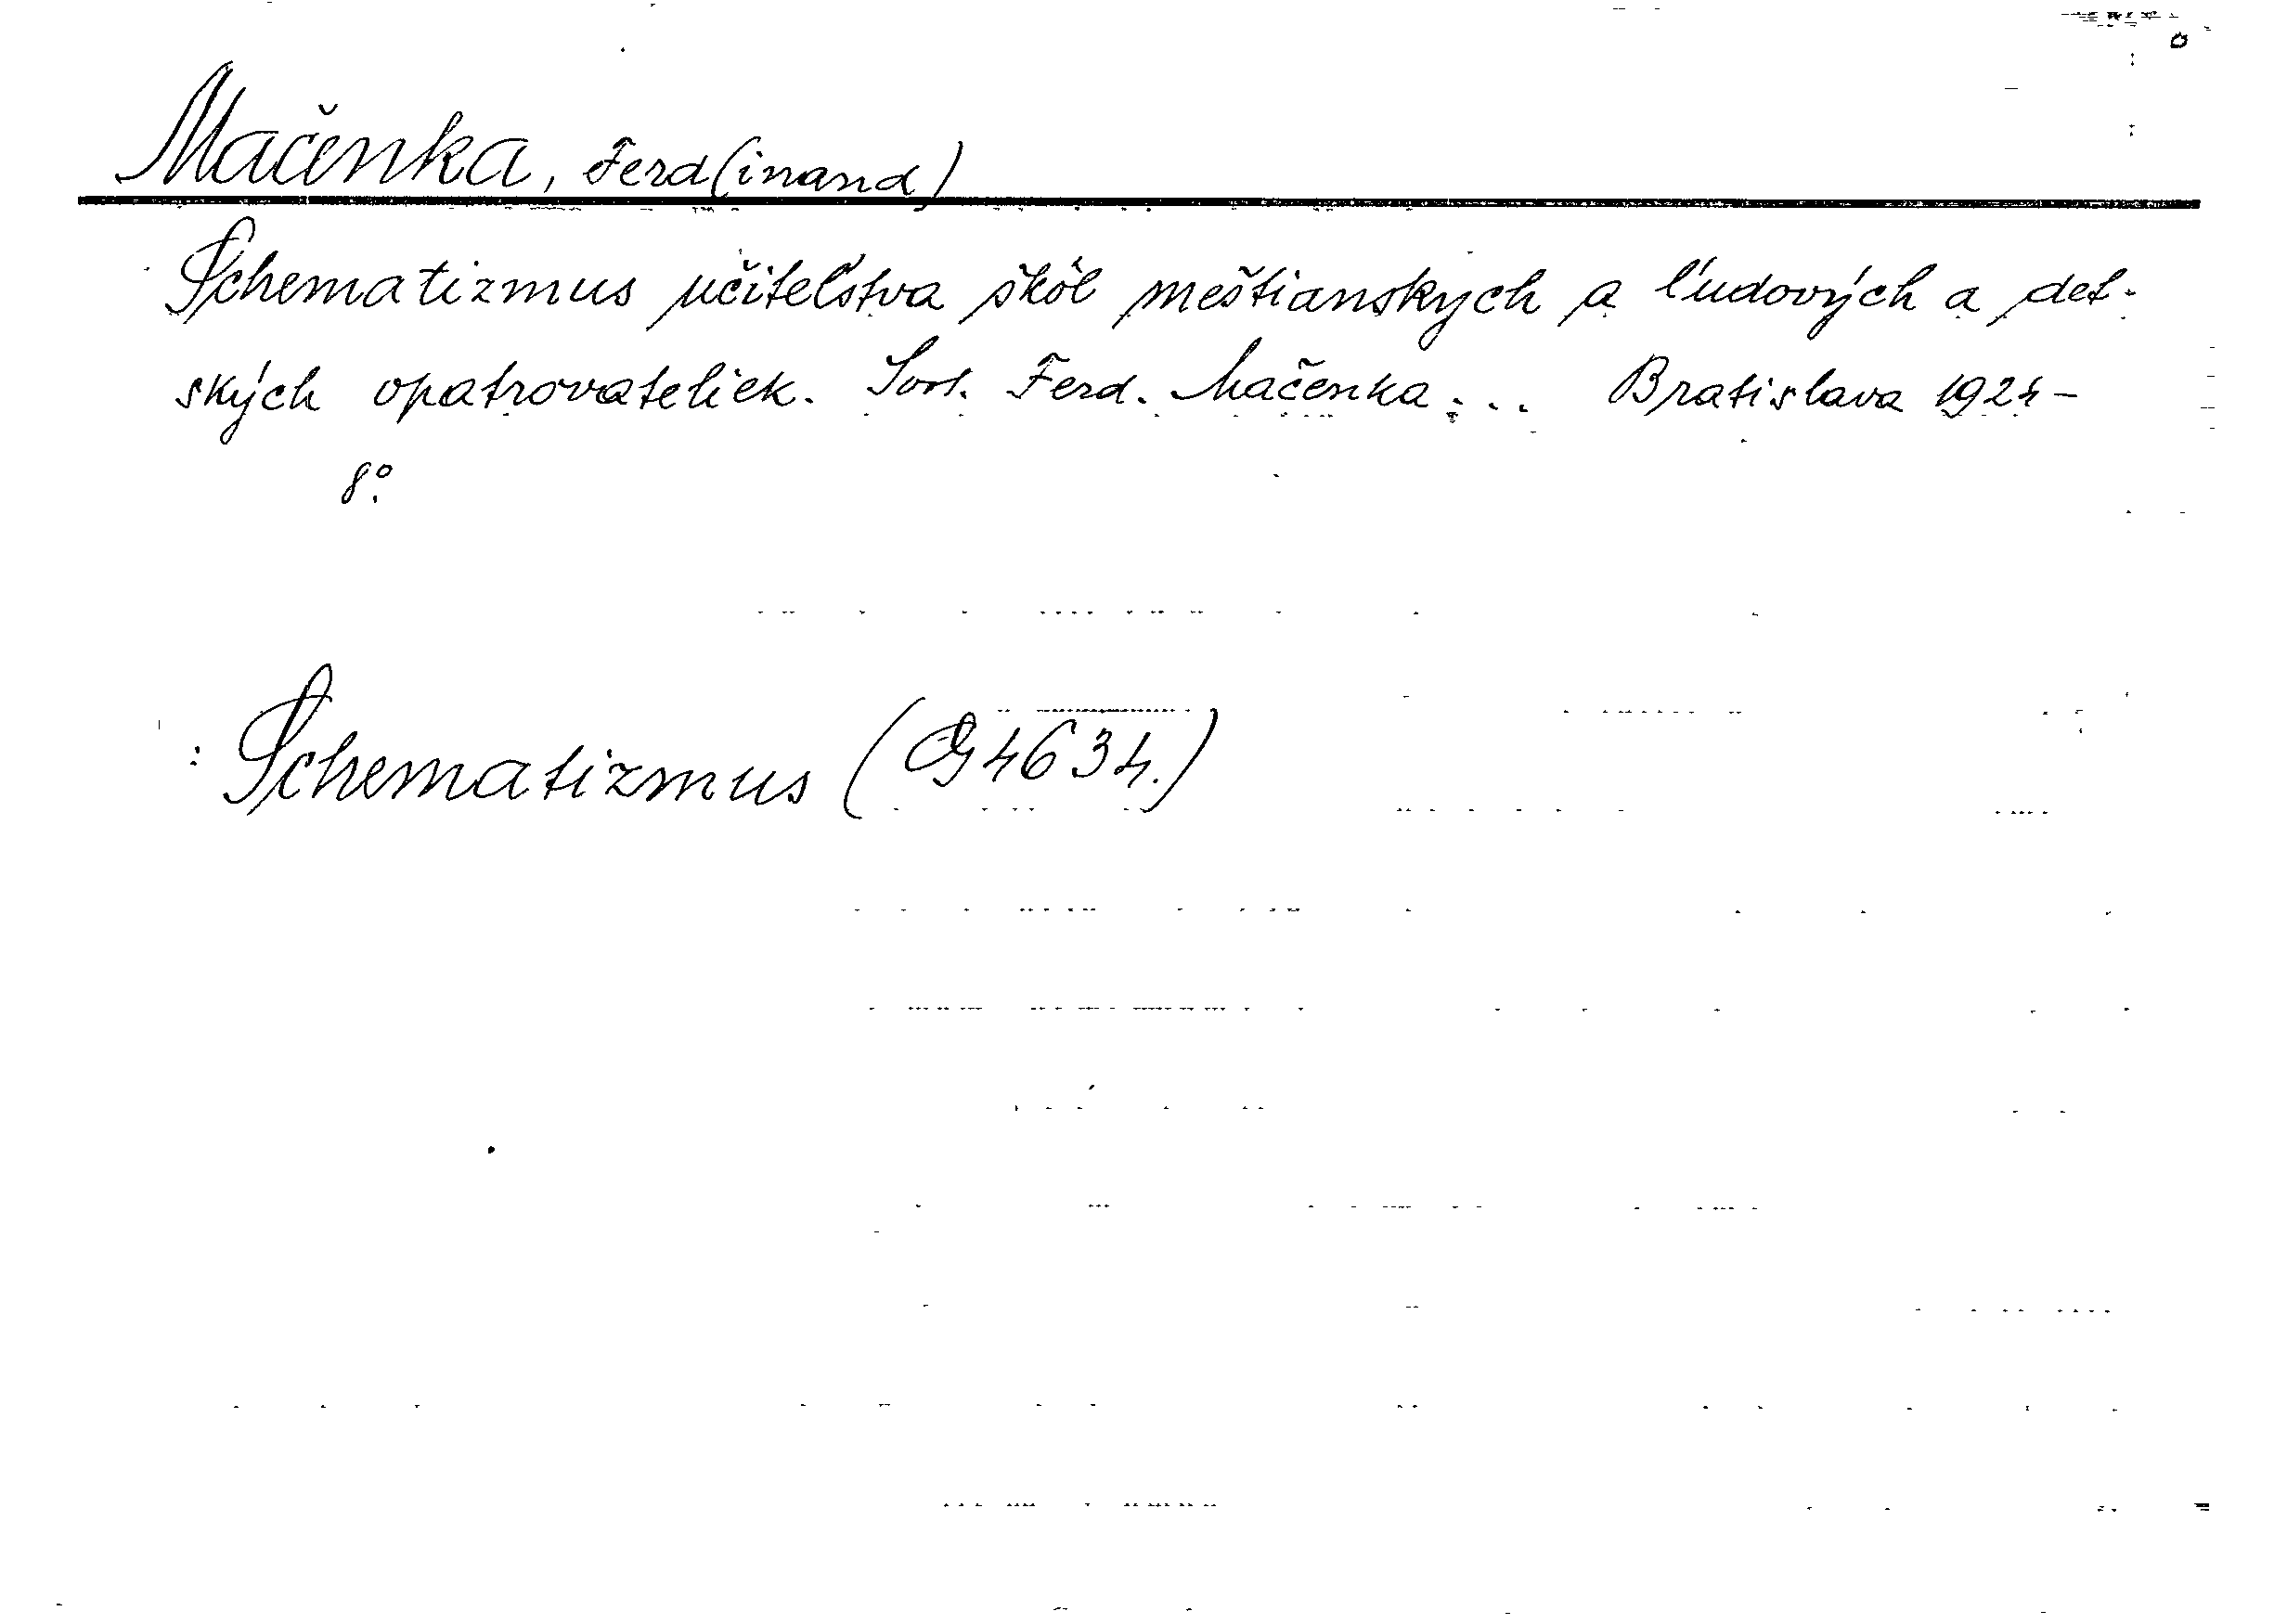 Mačenka, Ferd(inand)
Schematizmus učiteľstva škôl meštianskych a ľudových a det-
ských opatrovateliek. Sost. Ferd. Mačenka... Bratislava 1924-
8°.
Schematizmus (G 4634.)